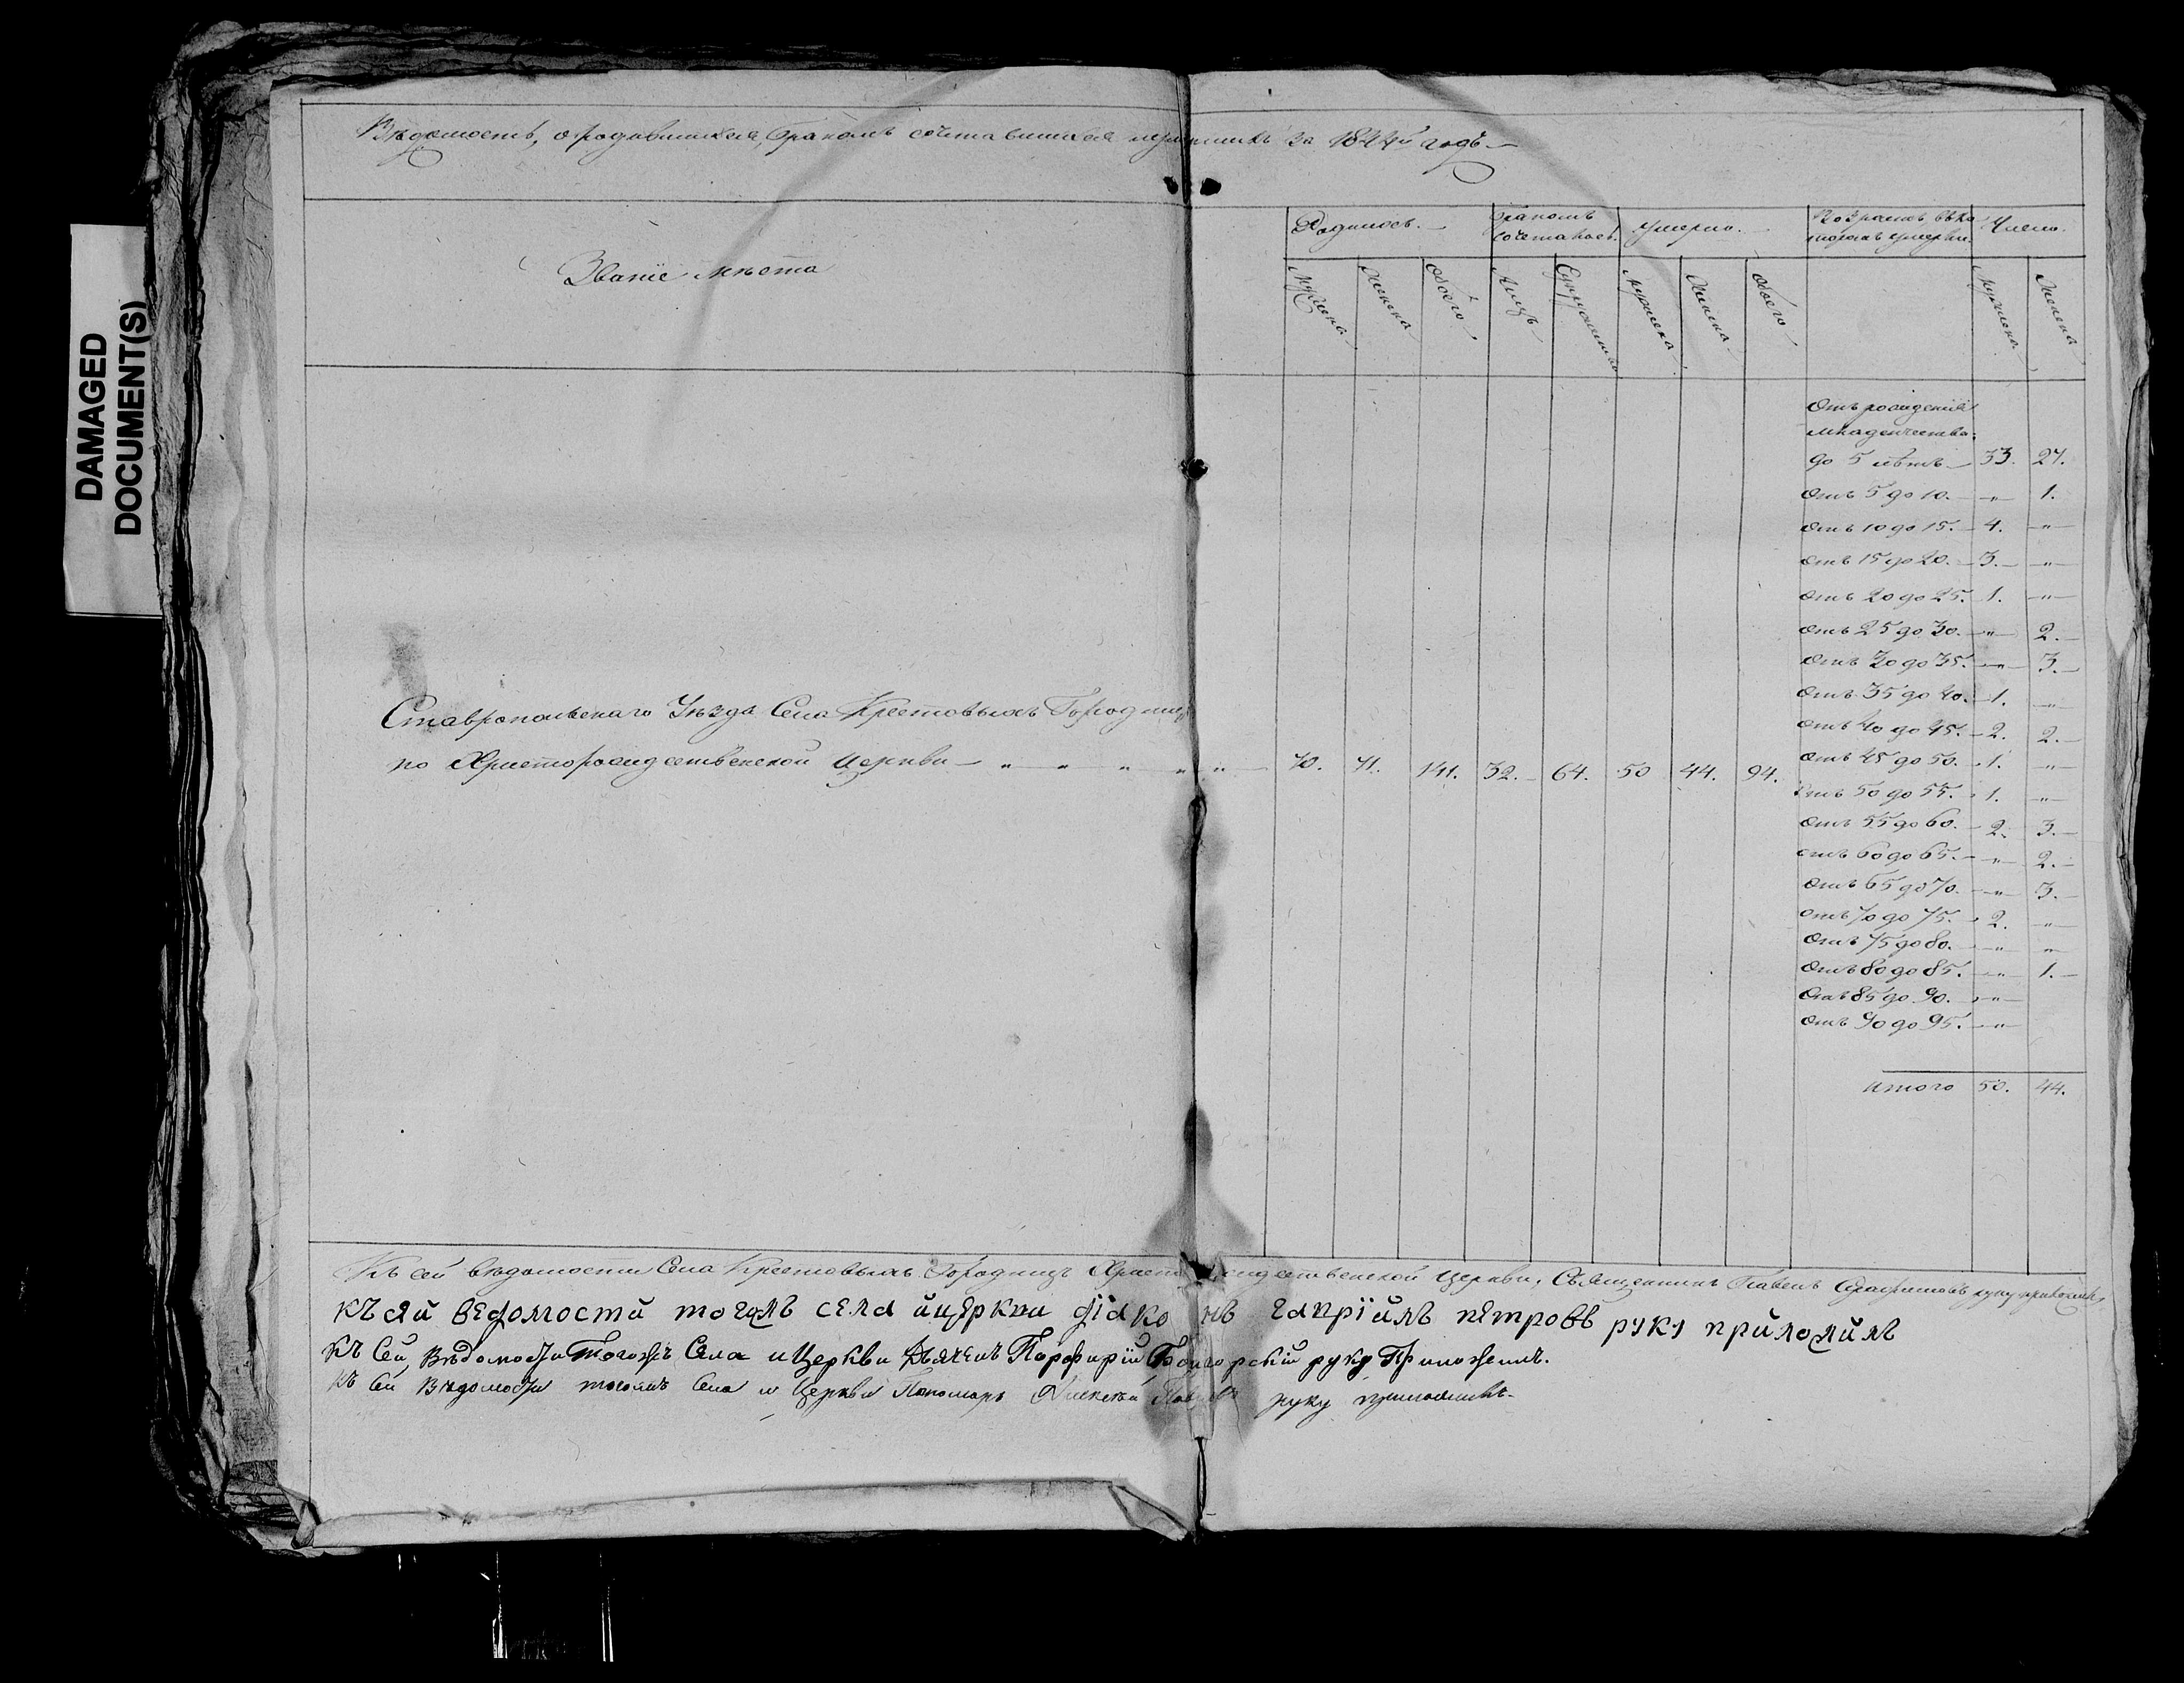 DAMAGED
DOCUMENT(S)
Вѣдомость, о родившихся, бракомъ сочетавшихся и умершихъ за 1844й годъ.
Званіе мѣста
Родилось. Бракомъ сочеталось. Умерло. Возрастъ въ ко- Число.
торомъ умерли.
Мужеска Женска Обоего Лицъ Супружествъ Мужеска Женска Обоего Мужеска Женска
Отъ рожденія
младенчества
до 5 лѣтъ 33. 27.
Отъ 5 до 10. " 1.
Отъ 10 до 15. 4. "
Отъ 15 до 20. 3. "
Отъ 20 до 25. 1. "
Отъ 25 до 30. " 2.
Отъ 30 до 35. " 3.
Отъ 35 до 40. 1. "
Отъ 40 до 45. 2. 2.
Отъ 45 до 50. 1. "
Отъ 50 до 55. 1. "
Отъ 55 до 60. 2. 3.
Отъ 60 до 65. " 2.
Отъ 65 до 70. " 3.
Отъ 70 до 75. 2. "
Отъ 75 до 80. " "
Отъ 80 до 85. " 1.
Отъ 85 до 90. "
Отъ 90 до 95. "
Итого 50. 44.
Ставропольскаго Уѣзда Села Крестовыхъ Городищъ
по Христорождественской Церкви " " " " " 70. 71. 141. 32. 64. 50 44. 94.
Къ сей вѣдомости Села Крестовыхъ Городищъ Христорождественской Церкви, Священникъ Павелъ руку приложилъ
къ сяй ведомостй тогожъ села й церкви діаконъ гаврійлъ пѣтровъ руку прйложйлъ
Къ Сей, Вѣдомости Тогожъ Села и Церкви Дьячекъ Порфирій руку Приложилъ.
Къ сей Вѣдомости тогожъ Села и Церкви Пономарь Алексѣй руку приложилъ.